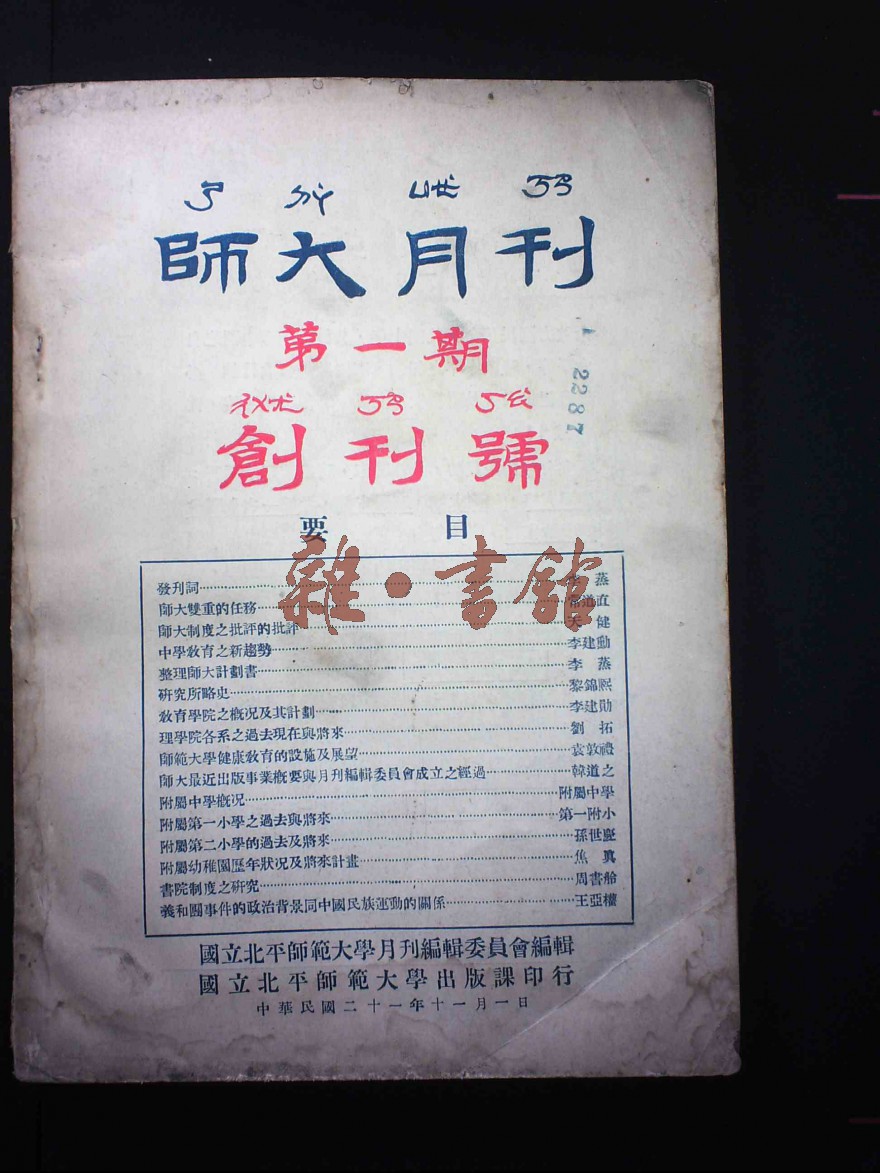 ㄕ ㄉㄚ ㄩㄝ ㄎㄢ
師大月刊
第一期
2287
ㄔㄨㄤ ㄎㄢ ㄏㄠ
創刊號
要目
雜·書館
發刊詞 李蒸
師大雙重的任務 道直
師大制度之批評的批評 健
中學教育之新趨勢 李建勳
整理師大計劃書 李蒸
研究所略史 黎錦熙
教育學院之概况及其計劃 李建勛
理學院各系之過去現在與將來 劉拓
師範大學健康教育的設施及展望 袁敦禮
師大最近出版事業概要與月刊編輯委員會成立之經過 韓道之
附屬中學概况 附屬中學
附屬第一小學之過去與將來 第一附小
附屬第二小學的過去及將來 孫世慶
附屬幼稚園歷年狀况及將來計畫 焦真
書院制度之研究 周書舲
義和團事件的政治背景同中國民族運動的關係 王亞權
國立北平師範大學月刊編輯委員會編輯
國立北平師範大學出版課印行
中華民國二十一年十一月一日